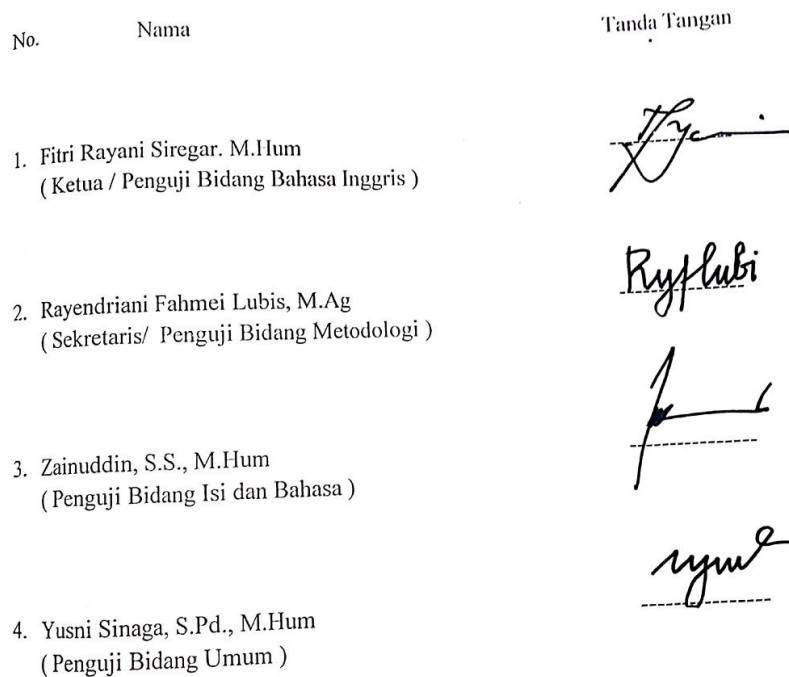 No. Nama Tanda Tangan
1. Fitri Rayani Siregar. M.Hum
( Ketua / Penguji Bidang Bahasa Inggris )
2. Rayendriani Fahmei Lubis, M.Ag
( Sekretaris/ Penguji Bidang Metodologi )
3. Zainuddin, S.S., M.Hum
( Penguji Bidang Isi dan Bahasa )
4. Yusni Sinaga, S.Pd., M.Hum
( Penguji Bidang Umum )